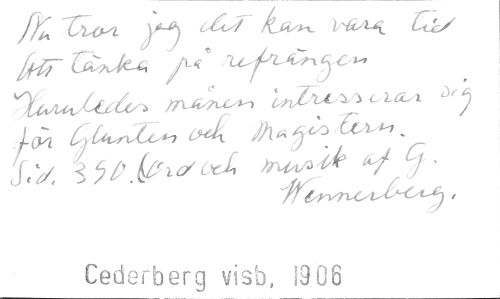 Nu tror jag det kan vara tid
att tänka på refrängen
Huruledes månen intresserar sig
för Glunten och Magistern.
Sid. 390. (Ord och musik af G.
Wennerberg.
Cederberg visb, 1906